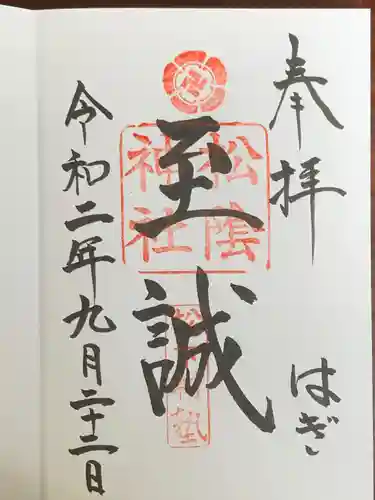 奉拝
はぎ
至誠
松陰神社
令和二年九月二十二日